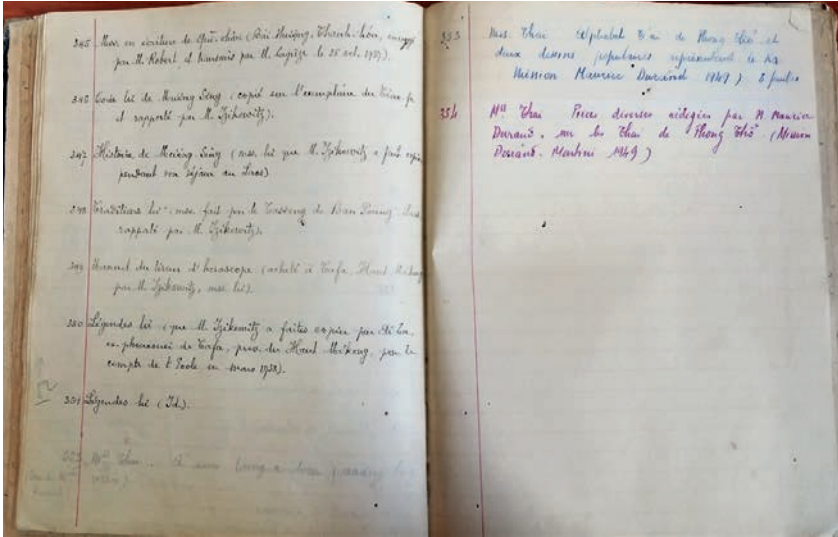 345 Mss. en écriture de Qui-châu (Bai Thuong, Thanh-hóa, envoyé
par M. Robert et transmis par M. Lagrèze le 25 oct. 1937).
346 Code lü de Muong Sing (copié sur l'exemplaire du
et rapporté par M. Izikowitz).
347 Histoire de Muong Sing (mss. lü que M. Izikowitz a fait copier
pendant son séjour au Laos)
348 Traditions lü : mss. fait par le Tasseng de Ban
rapporté par M. Izikowitz.
349 Manuel du tireur d'horoscope (acheté à Tafa, Haut Mékong
par M. Izikowitz, mss. lü).
350 Légendes lü (que M. Izikowitz a faites copier par
de Tafa, prov. du Haut Mékong, pour le
compte de l'Ecole en mars 1938).
351 Légendes lü (Id.).
Mss Thai
353 Mss. Thai Alphabet T'ai de Phong Thô et
deux dessins populaires représentant le
Mission Maurice Durand 1949)
354 Mss Thai Pièces diverses rédigées par M. Maurice
Durand, sur les Thai de Phong Thô (Mission
Durand. Martini 1949)